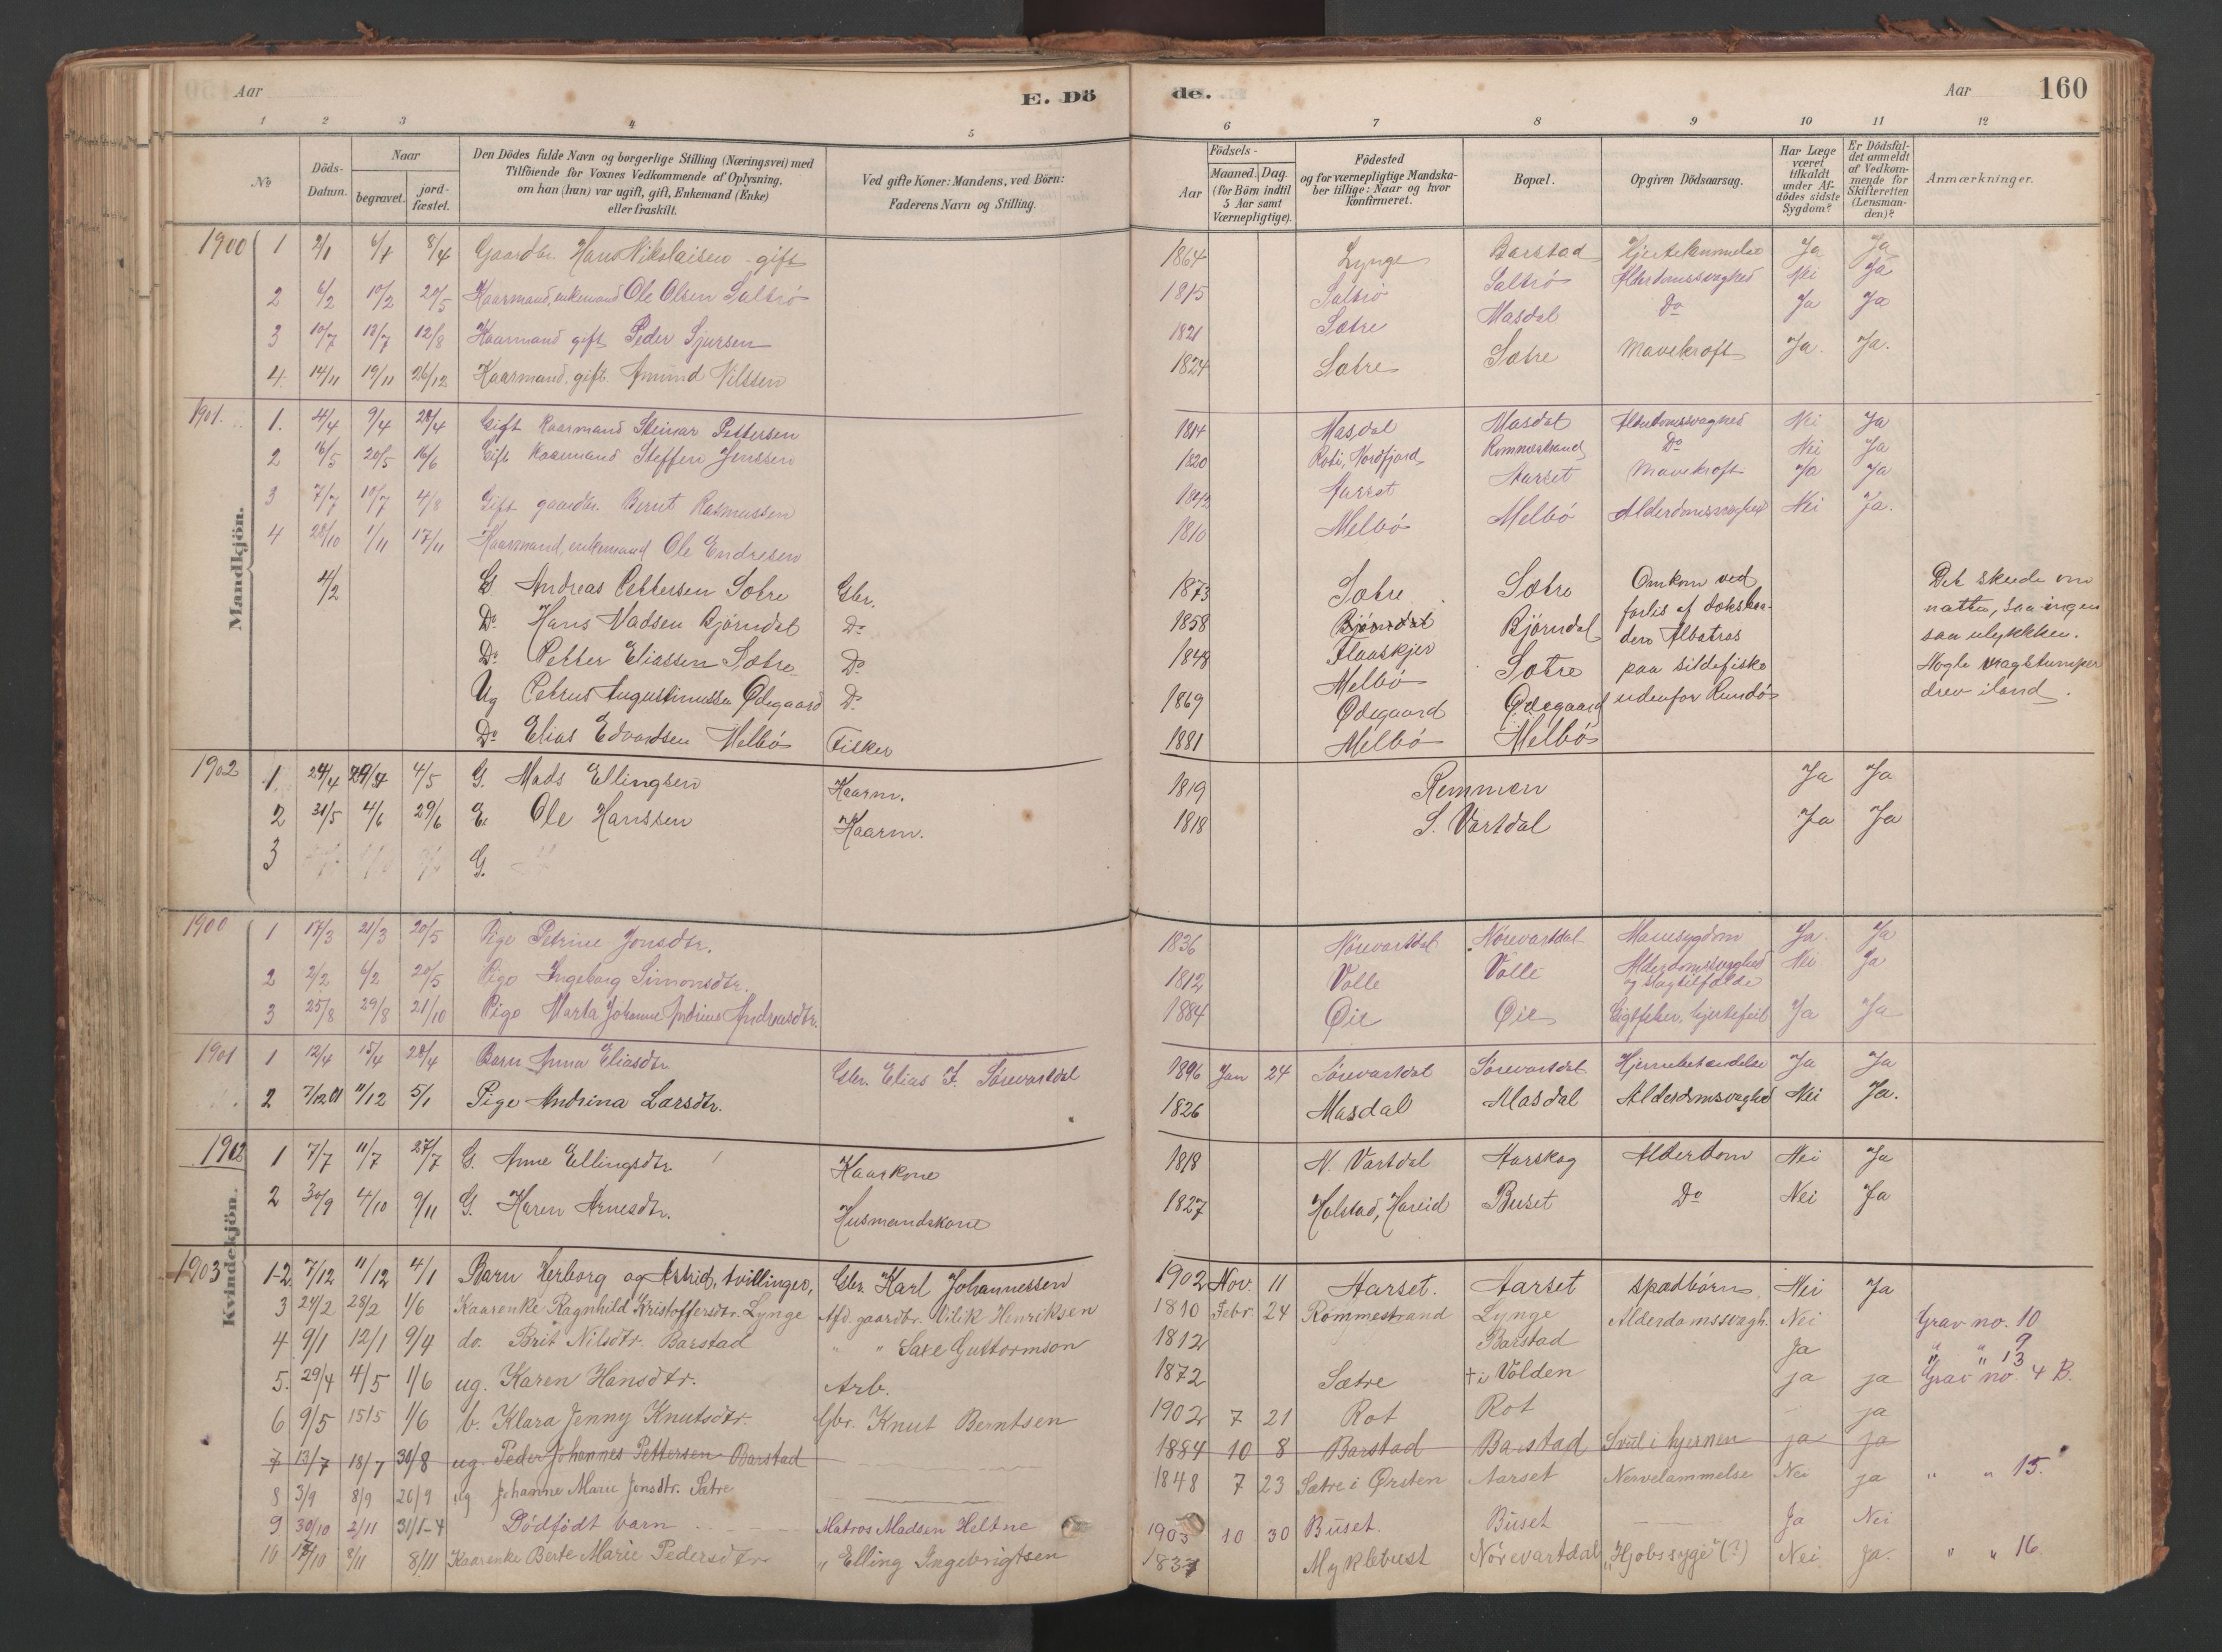 Aar
E. Dö
de.
Aar
160
1 2 3 4 5 6 7 8 9 10 11 12
No
Döds-Datum.
Naar
begravet.
jord-fæstet.
Den Dödes fulde Navn og borgerlige Stilling (Næringsvei) med
Tilföiende for Voxnes Vedkommende af Oplysning,
om han (hun) var ugift, gift, Enkemand (Enke)
eller fraskilt.
Ved gifte Koner: Mandens, ved Börn:
Faderens Navn og Stilling.
Födsels-
Aar
Maaned. Dag.
(for Börn indtil
5 Aar samt
Værnepligtige).
Födested
og for værnepligtige Mandska-
ber tillige: Naar og hvor
konfirmeret.
Bopæl.
Opgiven Dödsaarsag.
Har Læge
været
tilkaldt
under Af-
dödes sidste
Sygdom?
Er Dödsfal-
det anmeldt
af Vedkom-
mende for
Skifteretten
(Lensman-
den)?
Anmærkninger.
Mandkjön.
1900 1 2/1 6/1 8/4 Gaardbr. Hans Nikolaisen - gift 1864 Lynge Barstad Hjertelammelse Ja Ja
2 6/2 10/2 20/5 Kaarmand, enkemand Ole Olsen Saltrö 1815 Saltrö Saltrö Alderdomssvaghed Nei Ja
3 10/7 13/7 12/8 Kaarmand gift Peder Sjursen 1821 Sætre Masdal Do Ja Ja
4. 14/11 19/11 26/12 Kaarmand. gift. Amund Nilssen 1824 Sætre Sætre Mavekræft Ja. Ja.
1901. 1. 4/4 9/4 28/4 Gift Kaarmand Steinar Pettersen 1814 Masdal Masdal Alderdomssvaghed Nei Ja
2 16/5 20/5 16/6 Gift Kaarmand Steffen Jenssen 1820 Nordfjord Rommestrand Do Nei Ja
3 7/7 10/7 4/8 Gift gaardbr. Bernt Rasmussen 1842 Aarset Aarset Mavekræft Ja Ja
4 28/10 1/11 17/11 Kaarmand, enkemand Ole Endresen 1810 Melbö Melbö Alderdomssvaghed Nei Ja.
4/2 G Andreas Pettersen Sætre Gbr. 1873 Sætre Sætre Omkom ved Det skede om
Do Hans Madsen Björndal Do 1858 Björndal Björndal forlis af natten, saa ingen
Do Petter Eliassen Sætre Do 1848 Flaaskjer Sætre den Albatros saa ulykken.
Ug Petrus Augustinussen Ödegaard Do 1869 Melbö Ödegaard paa sildefiske Nogle vragstumper
Do Elias Edvardsen Melbö Fisker 1881 Ödegaard Melbö udenfor Rundö drev iland.
Melbö
1902 1. 24/4 29/4 4/5 G. Mads Ellingsen Kaarm. 1819 Remmen Ja Ja
2 31/5 4/6 29/6 E. Ole Hanssen Kaarm. 1818 S. Vartdal Ja Ja
3 G.
Kvindekjön.
1900 1 17/3 21/3 20/5 Pige Petrine Jonsdtr. 1836 Nörevartdal Nörevartdal Mavesygdom Ja. Ja
2 2/2 6/2 20/5 Pige Ingeborg Simonsdtr. 1812 Volle Volle Alderdomssvaghed Nei Ja
og slagtilfælde
3 25/8 29/8 21/10 Pige Marta Johanne Andrine Andreasdtr. 1884 Öie Öie Gigtfeber, hjertefeil Ja Ja
1901 1 12/4 15/4 28/4 Barn Anna Eliasdtr. Gbr. Elias J. Sörevartdal 1896 Jan 24 Sörevartdal Sörevartdal Hjernebetændelse Ja Ja
2 7/12 01 11/12 5/1 Pige Andrina Larsdtr. 1826 Masdal Masdal Alderdomssvaghed Nei Ja.
1902 1 7/7 11/7 27/7 G. Anne Ellingsdtr. Kaarkone 1818 N. Vartdal Aarskog Alderdom Nei Ja
2 30/9 4/10 9/11 G. Karen Arnesdtr. Husmandskone 1827 Holstad, Hareid Buset Do Nei Ja
1903 1-2 7/12 11/12 4/1 Barn Herborg og Astrid, tvillinger, Gbr. Karl Johannessen 1902 Nov. 11 Aarset. Aarset spædbörn Nei Ja
3 24/2 28/2 1/6 Kaarenke Ragnhild Kristoffersdtr. Lynge Afd. gaardbr. Vilik Henriksen 1810 Febr 24 Rommestrand Lynge Alderdomssvagh. Nei Grav no. 10
4 9/1 12/1 9/4 do. Brit Nilsdtr. Barstad " " Saxe Guttormson 1812 Barstad Ja " " 13
5. 29/4 4/5 1/6 ug. Karen Hansdtr. Arb. 1872 Sætre † i Volden ja ja Grav no. 4 B.
6 9/5 15/5 1/6 b. Klara Jenny Knutsdtr. Gbr. Knut Berntsen 1902 7 21 Rot Rot ja
7 13/7 18/7 30/8 ug. Peder Johannes Pettersen Barstad 1884 10 8 Barstad Barstad Svul i hjernen ja ja
8 3/9 8/9 20/9 ug Johanne Marie Jonsdtr. Sætre 1848 7 23 Sætre i Ørsten Aarset Nervelammelse Nei ja " " 15.
9 30/10 2/11 31/1-4 Dödfödt barn Matros Madsen Heltne 1903 10 30 Buset. Buset Ja Nei
10 8/11 8/11 Kaarenke Berte Marie Pedersdtr. " Elling Ingebrigtsen Myklebust Nörevartdal "Hjobssyge" (?) Nei. Ja. " " 16